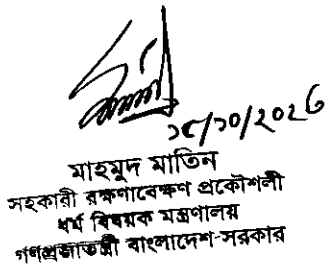 মাহমুদ মাতিন
সহকারী রক্ষণাবেক্ষণ প্রকৌশলী
ধর্ম বিষয়ক মন্ত্রণালয়
গণপ্রজাতন্ত্রী বাংলাদেশ সরকার